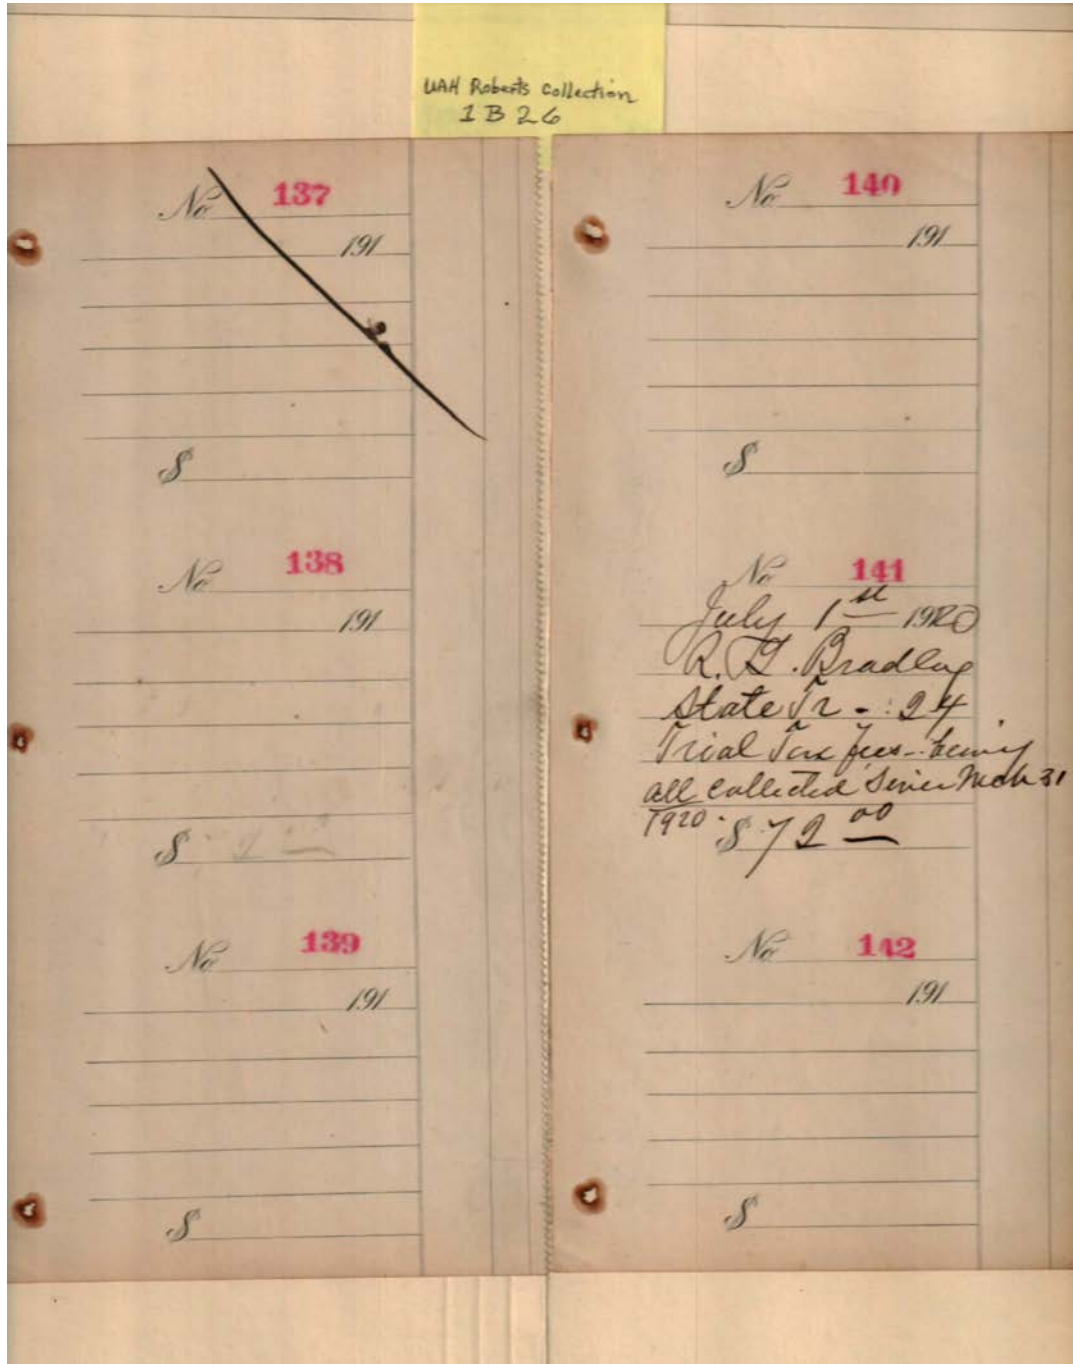 UAH Roberts Collection
1B26
No 137
191
$
No 138
191
$ 2
No 139
191
$
No 140
191
$
No 141
July 1st 1920
R. Bradley
State Tr - : 24
Trial Tax fees - being
all collected Since Mch 31
1920.
$ 72 00
No 142
191
$